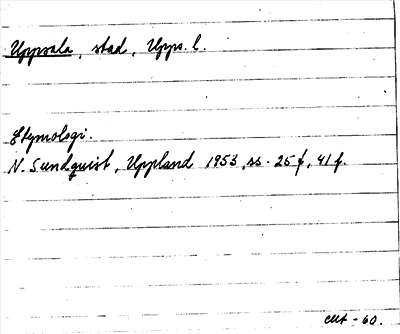 Uppsala, stad, Upps. l.
Etymologi.
N. Sundquist, Uppland 1953, ss. 25 f, 41 f.
-60.